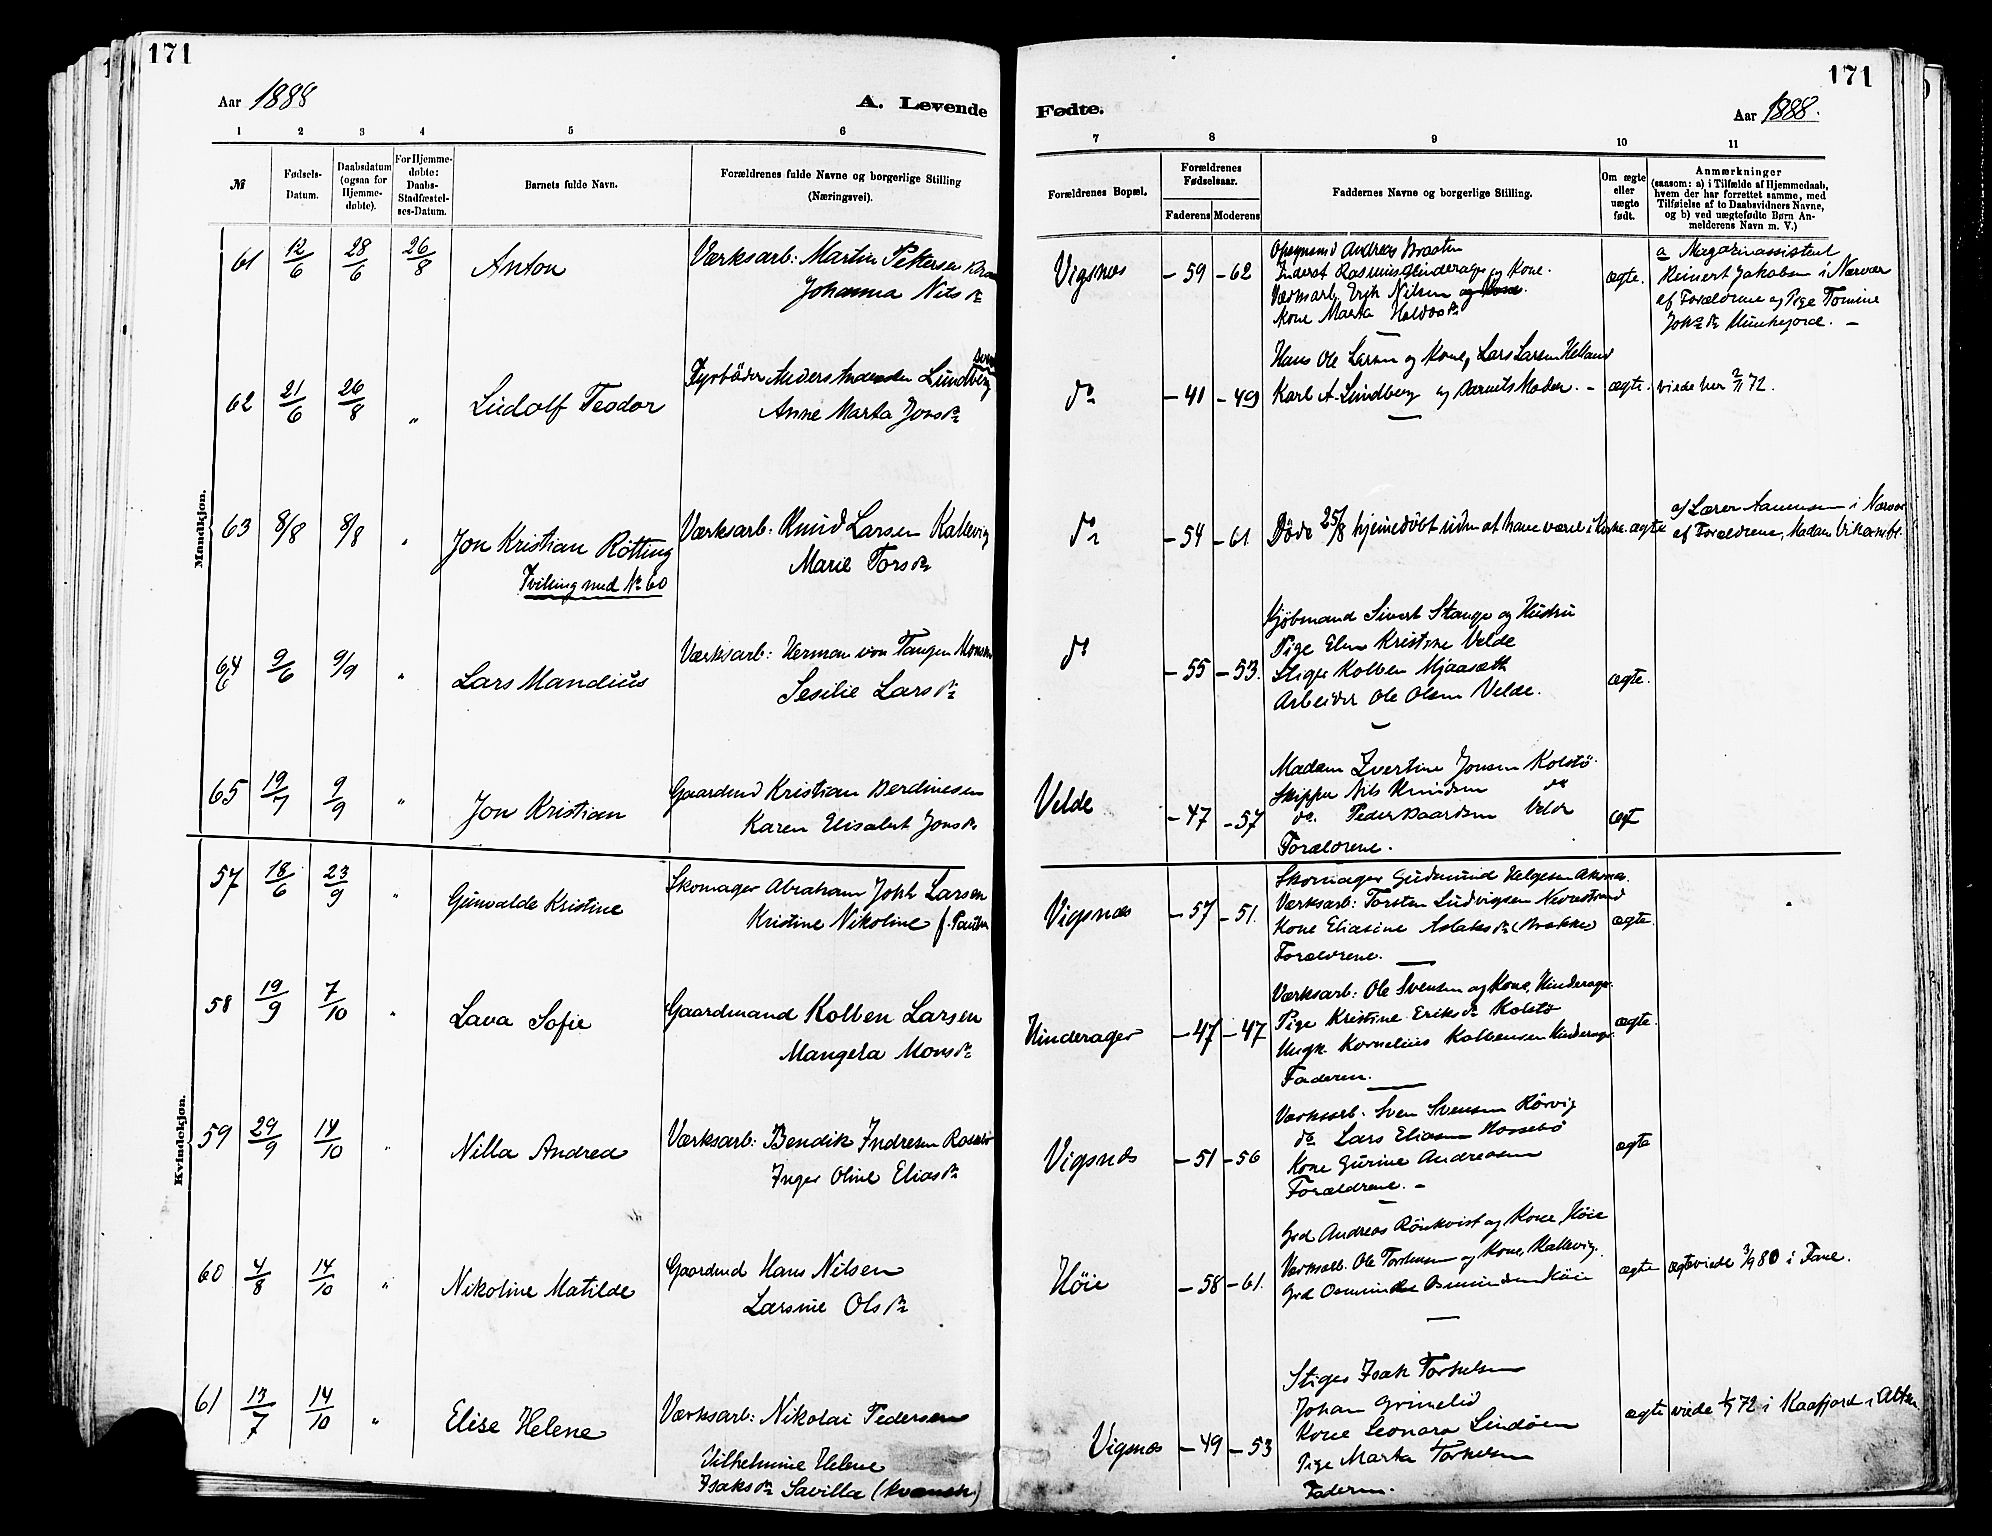 171
171
Aar 1888
A. Levende
Fødte.
Aar 1888.
1 2 3 4 5 6
7 8 9 10 11
№
Fødsels-
Datum.
Daabsdatum
(ogsaa for
Hjemme-
døbte).
For Hjemme-
døbte:
Daabs-
Stadfæstel-
ses-Datum.
Barnets fulde Navn.
Forældrenes fulde Navne og borgerlige Stilling
(Næringsvei).
Forældrenes Bopæl.
Forældrenes
Fødselsaar.
Faderens
Moderens
Faddernes Navne og borgerlige Stilling.
Om ægte
eller
uægte
født.
Anmærkninger
(saasom: a) i Tilfælde af Hjemmedaab,
hvem der har forrettet samme, med
Tilføielse af to Daabsvidners Navne,
og b) ved uægtefødte Børn An-
melderens Navn m. V.)
Mandkjøn.
61 12/6 28/6 26/8 Anton
Værksarb: Martin Pettersen
Johanna Nilsdr
Vigsnæs - 59 - 62
Andreas Braaten
og Kone.
Værksarb. Erik Nilsen og Kone.
Kone Marta
ægte.
a Magazinassistent
Reinert Jakobsen i Nærvær
af Forældrene og Pige Tomine
Munkejord. -
62 21/6 26/8 " Ludolf Teodor
Fyrbøder Anders Lundberg
Anne Marta Jonsdr
do - 41 - 49
Hans Ole Larsen og Kone, Lars Larsen Helland
Karl A. Lindberg og Barnets Moder. -
ægte. viede her 2/11 72.
63 8/8 8/8 " Jon Kristian Rötting
Tvilling med No 60
Værksarb: Knud Larsen Kallevig
Marie Torsdr
do - 54 - 61.
Döde 25/8 hjemmedöbt uden at have været i Kirke. ægte
af Lærer i Nærvær
af Forældrene, Madam
64 9/6 9/9 " Lars Mandius
Værksarb: Herman von Tangen
Sesilie Larsdr
do - 55 - 53.
Kjöbmand Sivert Stange og Hustru
Pige Elen Kristine Velde
Stiger Kolben Mjaasæth
Arbeider Ole Olsen Velde.
ægte.
65 19/7 9/9 " Jon Kristian
Gaardmd Kristian Berdinesen
Karen Elisabet Jonsdr
Velde - 47 - 57
Madam Ivertine Jonsen Kolstö
Skipper Nils Knudsen do
do. Peder Baardsen Velde
Forældrene.
ægt
Kvindekjøn.
57 18/6 23/9 " Gunvalde Kristine
Skomager Abraham Joh Larsen
Kristine Nikoline f.
Vigsnæs - 57 - 51.
Skomager Gudmund Helgesen
Værksarb: Torsten Ludvigsen
Kone Eliasine Aslaksdr (Brekke)
Forældrene.
ægte.
58 19/9 7/10 " Lava Sofie
Gaardmand Kolben Larsen
Mangela Monsdr
Hinderager - 47 - 47
Værksarb: Ole Svensen og Kone, Hinderager
Pige Kristine Eriksdr Kolstö
Ungk. Kornelius Kolbensen Hinderager
Faderen.
ægte.
59 29/9 14/10 " Nilla Andrea
Værksarb: Bendik Indresen
Inger Oline Eliasdr
Vigsnæs - 51 - 56
Værksarb. Sven Svensen Rörvig
do Lars Eliasen
Kone Gurine Andreasen
Forældrene. -
ægte
60 4/8 14/10 " Nikoline Matilde
Gaardmd Hans Nilsen
Larsine Olsdr
Höie - 58 - 61.
Grd Andreas Rönkvist og Kone, Höie
Værksarb. Ole Torkelsen og Kone, Kallevig.
Grd Osmund Osmundsen Höie
ægte ægteviede 3/9 80 i Fane.
61 13/7 14/10 " Elise Helene
Værksarb: Nikolai Pedersen
Vilhelmine Helene
Isaksdr Savilla (kvænsk)
Vigsnæs - 49 - 53
Stiger Isak Torkelsen
Johan Grinelid
Kone Leonara Lindöen
Pige Marta Torkelsen
Faderen.
ægte viede 1/7 72 i Kaafjord i Alten